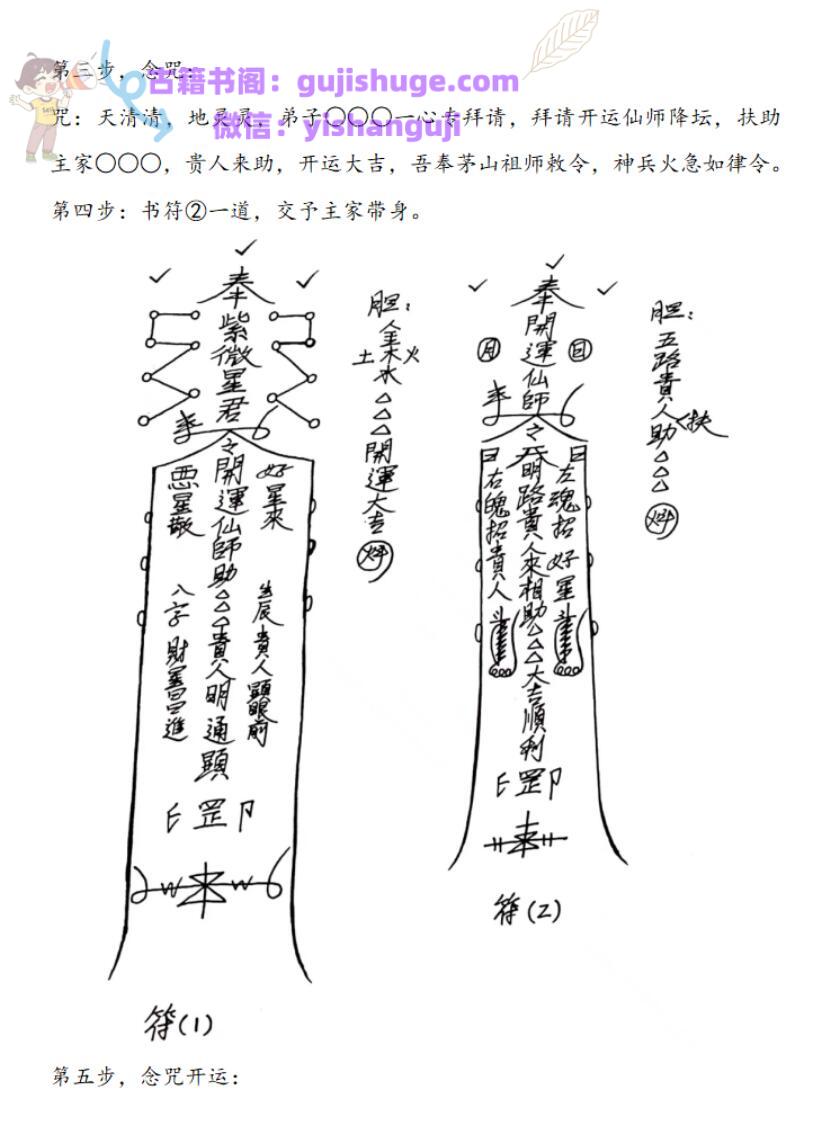 第三步，念咒：
古籍书阁：gujishuge.com
咒：天清清，地灵灵，弟子〇〇〇一心专拜请，拜请开运仙师降坛，扶助
微信：yishanguji
主家〇〇〇，贵人来助，开运大吉，吾奉茅山祖师敕令，神兵火急如律令。
第四步：书符②一道，交予主家带身。
奉紫微星君
之開運仙師助△△△貴人明通顯
好星來
惡星散
生辰貴人顯眼前
八字財喜日日進
罡印
胆：
金木水
土 火
△△△開運大吉
符(1)
奉開運仙師
月 日
之
明路貴人來相助△△△大吉順利
左魂招好星
右魄招貴人
罡印
胆：
五路貴人扶助△△△
符(2)
第五步，念咒开运：